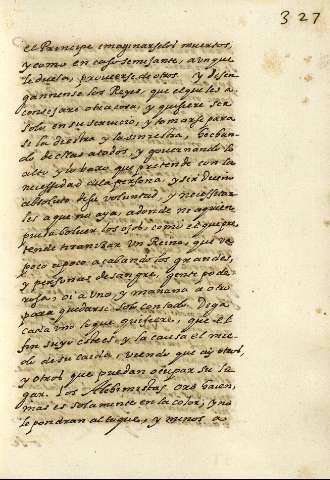 327
el Principe imaginarselos muertos,
y como en caso semejante, aunque
le duela, proveerse de otros. y desen
gannense los Reyes, que el que les a
consejare otra cosa, y quisiere ser
solo en su servicio, y tomarse para
si la diestra y la siniestra, hechan
do de estas a todos, y governando lo
alto y lo baxo que pretende con la
necessidad de la persona, y ser dueño
absoluto de su voluntad, y necessitar
les a que no aya, adonde ni a quien
pueda bolver los ojos, como el que pre
tende tiranizar un Reino, que va
poco a poco acabando los grandes,
y personas de sangre, gente pode
rosa, oi a uno, y mañana a otro
para quedarse solo con todo. Diga
cada uno lo que quisiere, que el
fin suyo es este, y la causa el mie
do de su caida, viendo que ay otros,
y otros que puedan ocupar su lu
gar. Los Alchimistas oro hacen,
mas es solamente en la color, y no
lo pondran al toque, y menos a